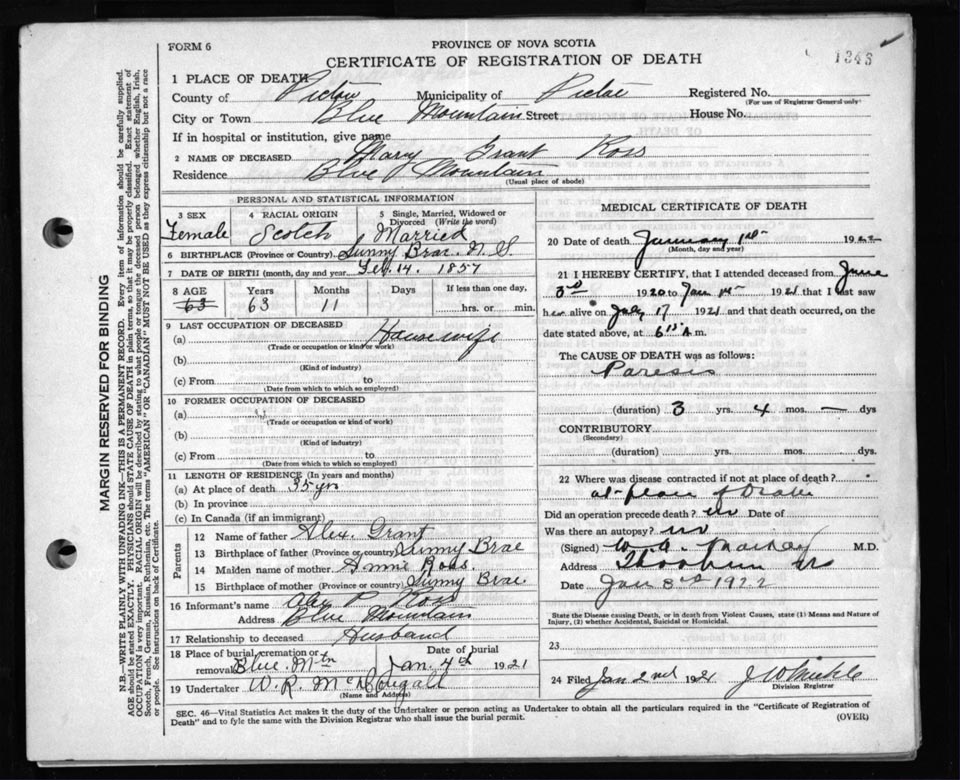 FORM 6
PROVINCE OF NOVA SCOTIA
CERTIFICATE OF REGISTRATION OF DEATH
1343
MARGIN RESERVED FOR BINDING
N.B.—WRITE PLAINLY WITH UNFADING INK—THIS IS A PERMANENT RECORD. Every item of information should be carefully supplied.
AGE should be stated EXACTLY. PHYSICIANS should STATE CAUSE OF DEATH in plain terms, so that it may be properly classified. Exact statement of
OCCUPATION is very important. RACIAL ORIGIN will be described by stating to what people or tongue the deceased person belonged whether English, Irish,
Scotch, French, German, Russian, Ruthenian, etc. The terms "AMERICAN" OR "CANADIAN" MUST NOT BE USED as they express citizenship but not a race
or people. See instructions on back of Certificate.
1 PLACE OF DEATH
County of Pictou Municipality of Pictou Registered No.
(For use of Registrar General only)
City or Town Blue Mountain Street House No.
If in hospital or institution, give name
2 NAME OF DECEASED Mary Grant Ross
Residence Blue Mountain
(Usual place of abode)
PERSONAL AND STATISTICAL INFORMATION
3 SEX Female
4 RACIAL ORIGIN Scotch
5 Single, Married, Widowed or Divorced (Write the word) Married
6 BIRTHPLACE (Province or Country) Sunny Brae. N. S.
7 DATE OF BIRTH (month, day and year) Feb. 14. 1857
8 AGE 63 Years 63 Months 11 Days If less than one day, hrs. or min.
9 LAST OCCUPATION OF DECEASED
(a) Housewife
(Trade or occupation or kind of work)
(b)
(Kind of industry)
(c) From to
(Date from which to which so employed)
10 FORMER OCCUPATION OF DECEASED
(a)
(Trade or occupation or kind of work)
(b)
(Kind of industry)
(c) From to
(Date from which to which so employed)
11 LENGTH OF RESIDENCE (In years and months)
(a) At place of death 35 yrs
(b) In province
(c) In Canada (if an immigrant)
Parents
12 Name of father Alex. Grant
13 Birthplace of father (Province or country) Sunny Brae
14 Maiden name of mother Annie Ross
15 Birthplace of mother (Province or country) Sunny Brae
16 Informant's name Alex P. Ross
Address Blue Mountain
17 Relationship to deceased Husband
18 Place of burial, cremation or removal Blue. Mtn
Date of burial Jan. 4th 1921
19 Undertaker W. R. McDougall
(Name and Address)
MEDICAL CERTIFICATE OF DEATH
20 Date of death January 1st 1922
(Month, day and year)
21 I HEREBY CERTIFY, that I attended deceased from June
3rd 1920 to Jan 1st 1921 that I last saw
her alive on July 17 1921 and that death occurred, on the
date stated above, at 6 15 A m.
The CAUSE OF DEATH was as follows:
Paresis
(duration) 3 yrs. 4 mos. — dys
CONTRIBUTORY
(Secondary)
(duration) yrs. mos. dys.
22 Where was disease contracted if not at place of death?
at place of Death
Did an operation precede death? no Date of
Was there an autopsy? no
(Signed) M.D.
Address Thorburn NS
Date Jan 3rd 1922
State the Disease causing Death, or in death from Violent Causes, state (1) Means and Nature of
Injury, (2) whether Accidental, Suicidal or Homicidal.
23
24 Filed Jan 2nd 1921
Division Registrar
SEC. 46—Vital Statistics Act makes it the duty of the Undertaker or person acting as Undertaker to obtain all the particulars required in the "Certificate of Registration of
Death" and to fyle the same with the Division Registrar who shall issue the burial permit.
(OVER)